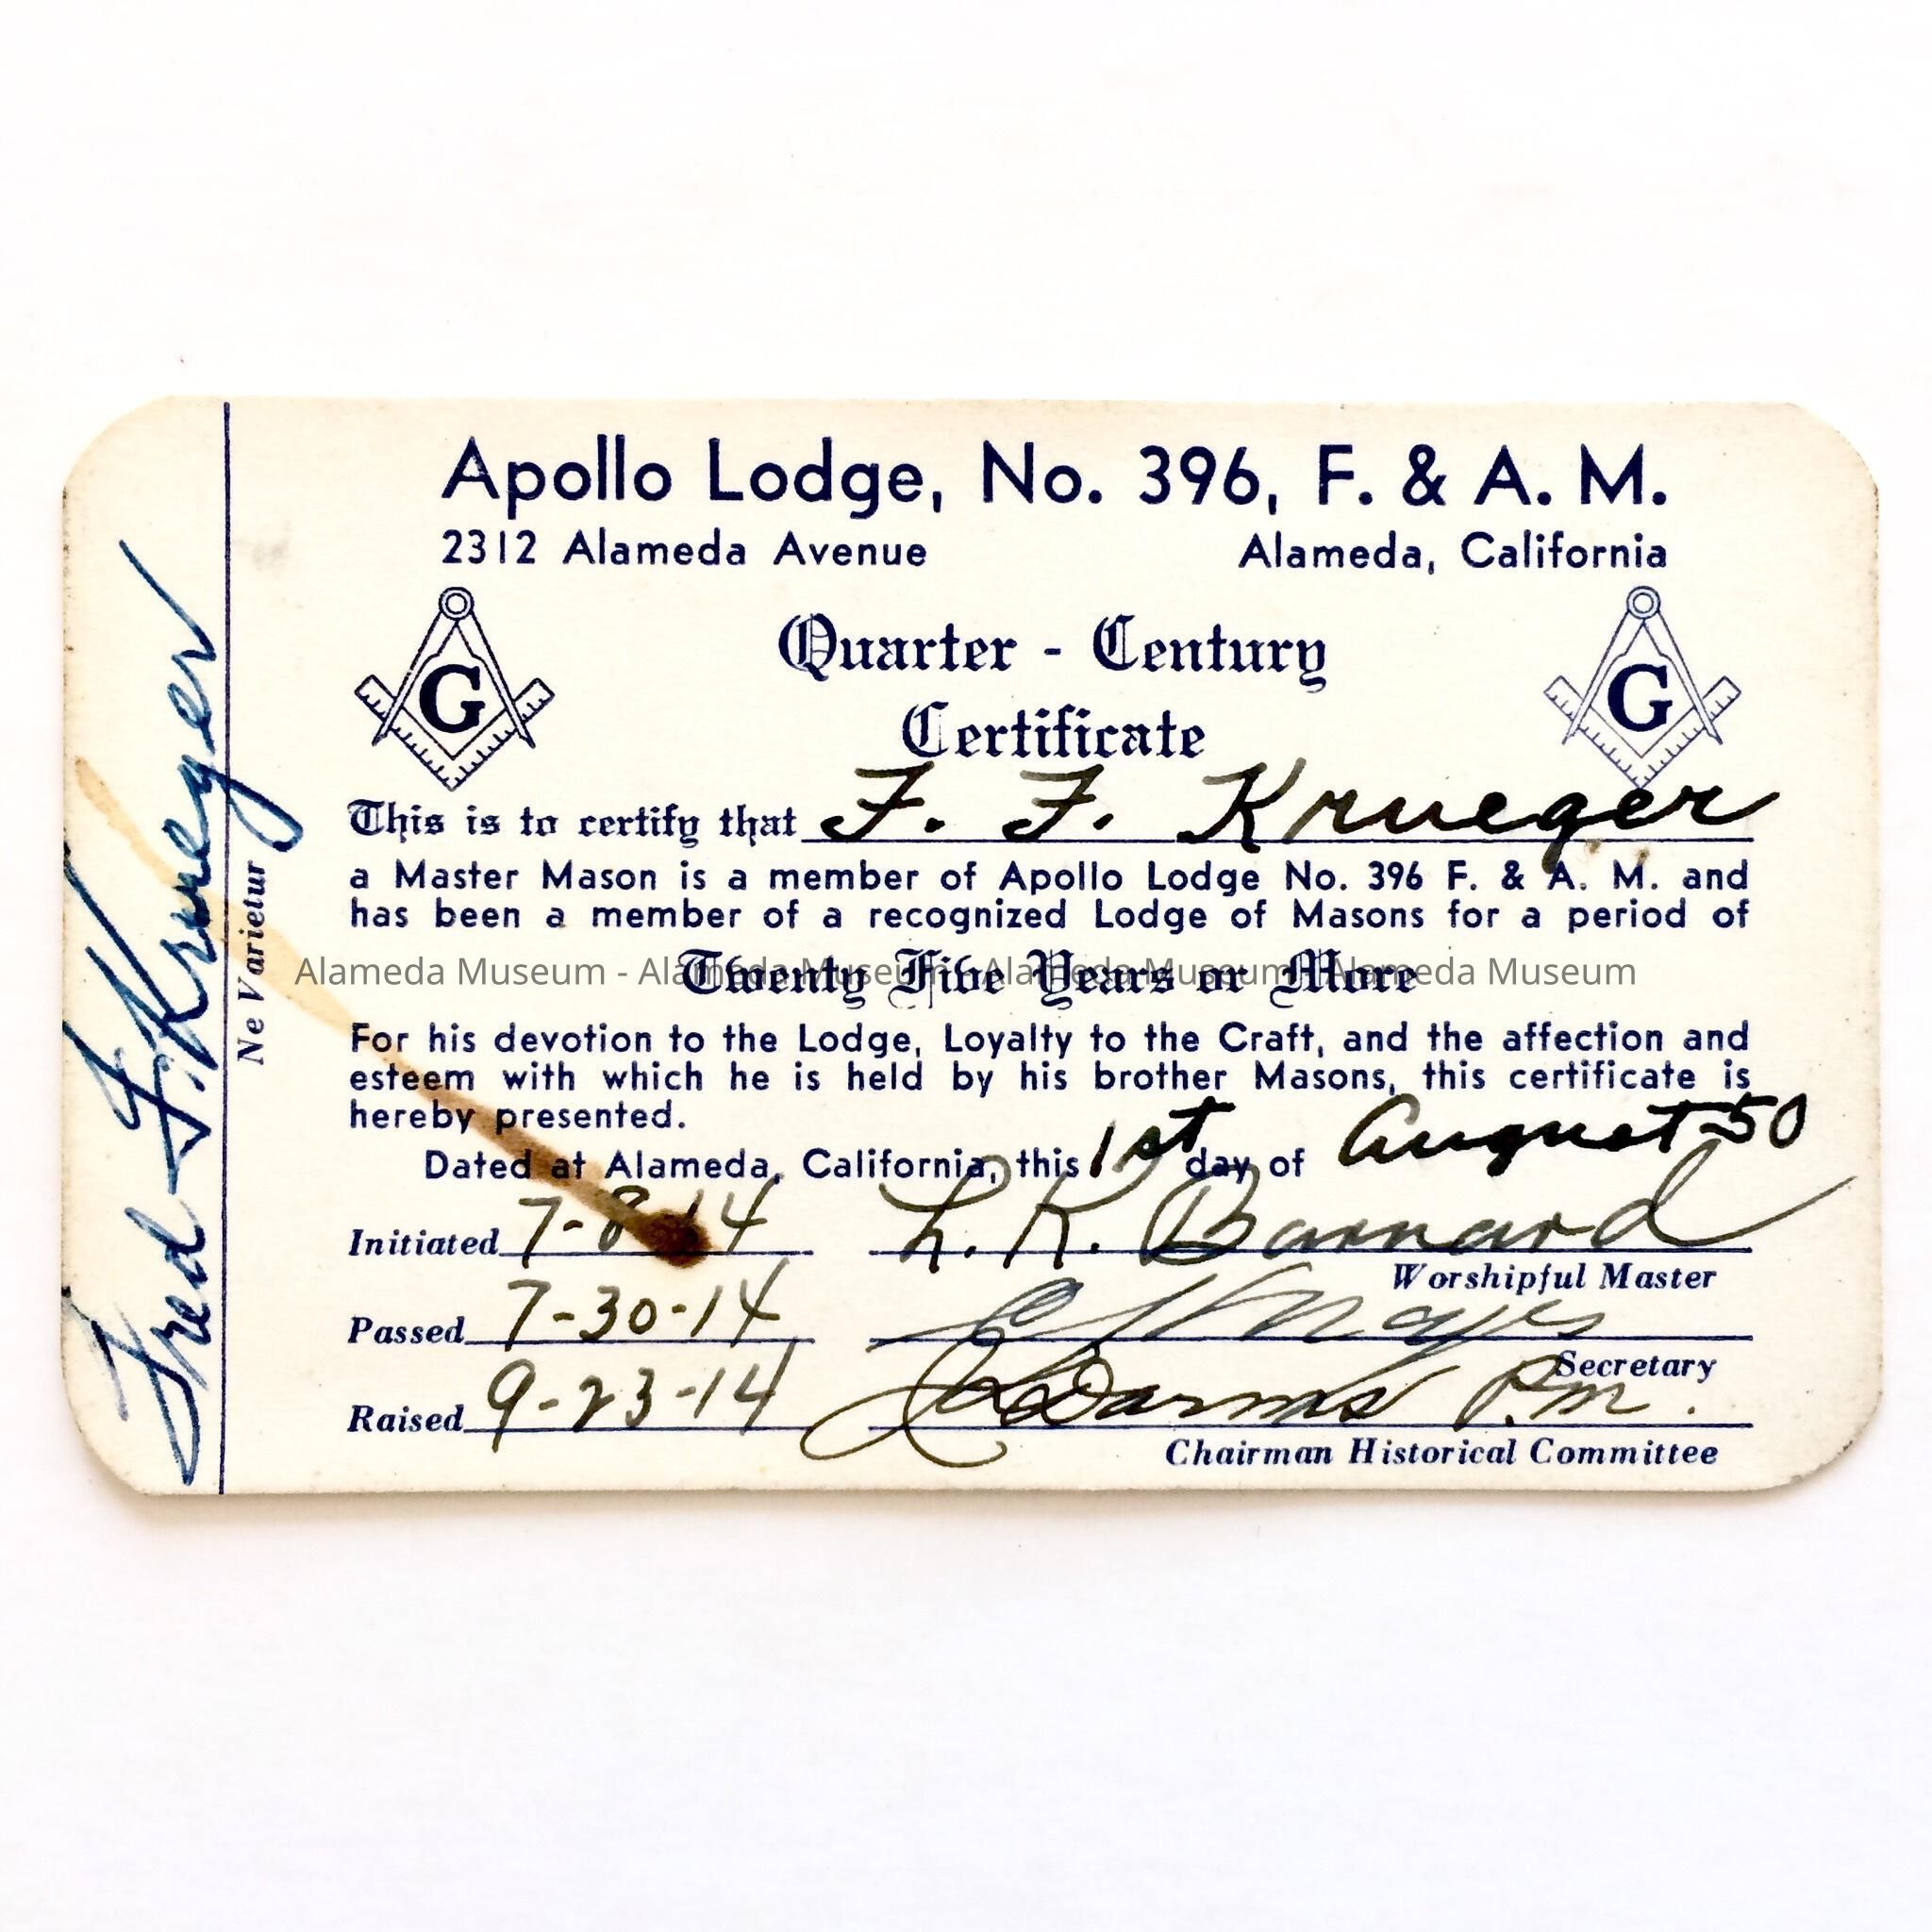 Apollo Lodge, No. 396, F. & A. M.
2312 Alameda Avenue Alameda, California
G G
Quarter - Century
Certificate
This is to certify that F. F. Krueger
a Master Mason is a member of Apollo Lodge No. 396 F. & A. M. and
has been a member of a recognized Lodge of Masons for a period of
Twenty Five Years or More
Alameda Museum - Alameda Museum - Alameda Museum - Alameda Museum
For his devotion to the Lodge, Loyalty to the Craft, and the affection and
esteem with which he is held by his brother Masons, this certificate is
hereby presented.
Dated at Alameda, California, this 1st day of August 50
Initiated 7-8-14 L. K. Barnard
Worshipful Master
Passed 7-30-14
Secretary
Raised 9-23-14 Darms P.M.
Chairman Historical Committee
Fred F. Krueger
Ne Varietur